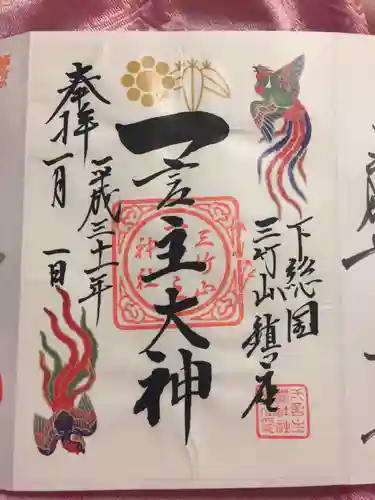 下総国
三竹山鎮座
一言主大神
三竹山
神社
奉拝
平成三十一年
一月一日